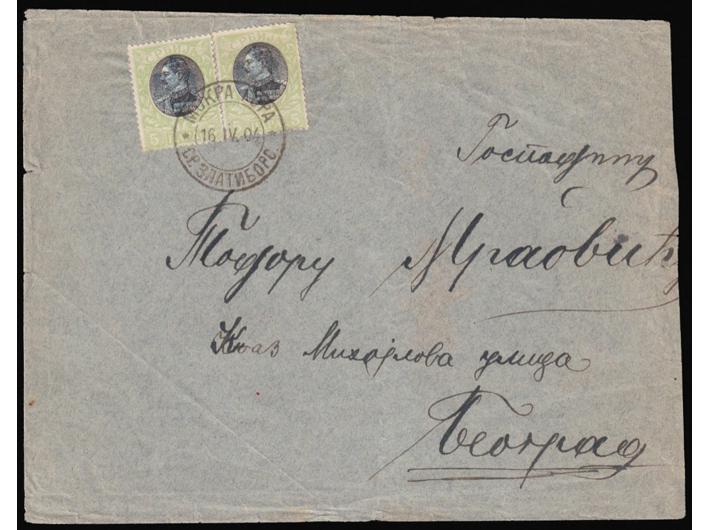 МОКРА ГОРА
16 IV. 04
СР. ЗЛАТИБОРС.
Господину
Тодору
Кнез Михајлова улица
Београд